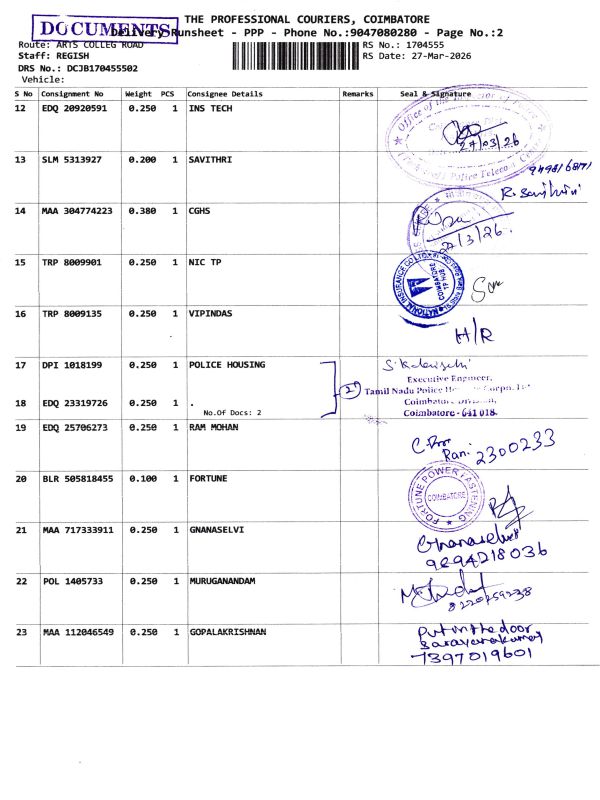 THE PROFESSIONAL COURIERS, COIMBATORE
DOCUMENTS
Delivery Runsheet - PPP - Phone No.:9047080280 - Page No.:2
Route: ARTS COLLEG ROAD
RS No.: 1704555
Staff: REGISH
RS Date: 27-Mar-2026
DRS No.: DCJB170455502
Vehicle:
S No Consignment No Weight PCS Consignee Details Remarks Seal & Signature
12 EDQ 20920591 0.250 1 INS TECH
27/03/26
13 SLM 5313927 0.200 1 SAVITHRI
14 MAA 304774223 0.380 1 CGHS
27/3/26.
15 TRP 8009901 0.250 1 NIC TP
NATIONAL INSURANCE CO LTD
COIMBATORE
TP HUB
16 TRP 8009135 0.250 1 VIPINDAS
H/R
17 DPI 1018199 0.250 1 POLICE HOUSING
2
Executive Engineer,
Tamil Nadu Police
18 EDQ 23319726 0.250 1 .
No.Of Docs: 2
Coimbatore - 641 018.
19 EDQ 25706273 0.250 1 RAM MOHAN
Rani 2300233
20 BLR 505818455 0.100 1 FORTUNE
FORTUNE POWER FASTENING
COIMBATORE
21 MAA 717333911 0.250 1 GNANASELVI
Gnanaselvi
9894218036
22 POL 1405733 0.250 1 MURUGANANDAM
8220259238
23 MAA 112046549 0.250 1 GOPALAKRISHNAN
Put in the door
Saravanakumar
7397019601